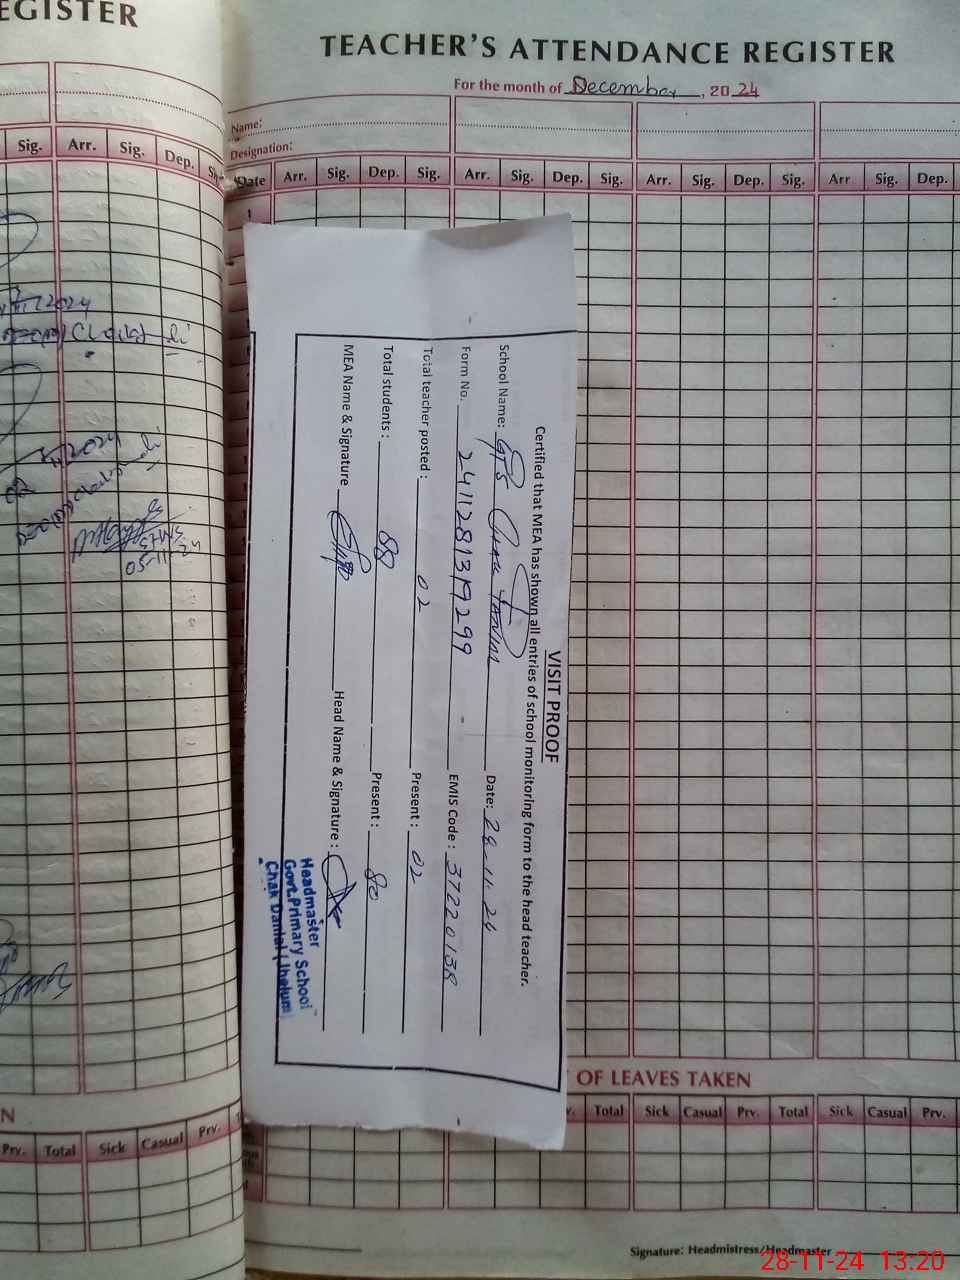 EGISTER
Sig. Arr. Sig. Dep.
TEACHER'S ATTENDANCE REGISTER
For the month of December, 2024
Name:
Designation:
Date Arr. Sig. Dep. Sig. Arr. Sig. Dep. Sig. Arr. Sig. Dep. Sig. Arr Sig. Dep.
1
VISIT PROOF
Certified that MEA has shown all entries of school monitoring form to the head teacher.
School Name: GPS Chak Danial Date: 28-11-24
Form No. 2411281319299 EMIS Code:
Total teacher posted: 02 Present: 02
Total students: 88 Present: 80
MEA Name & Signature Head Name & Signature:
Headmaster
Govt. Primary School
Chak Danial (Jhelum)
OF LEAVES TAKEN
Total Sick Casual Prv. Total Sick Casual Prv.
N
Prv. Total Sick Casual Prv.
Signature: Headmistress/Headmaster
28-11-24 13:20